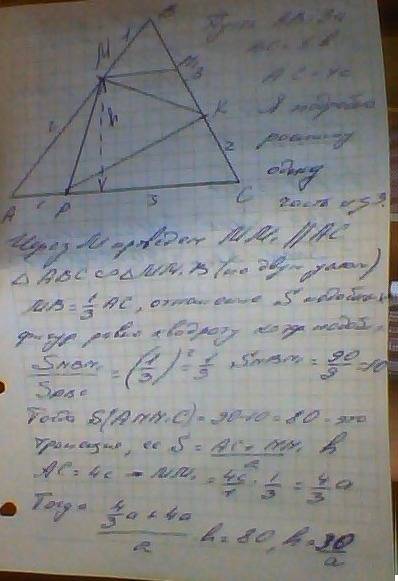 Пусть AB=3a
BC=5b
AC=4c
Я подробно
распишу
одну
часть из 3.
B
M 1
M₁
3
2 h K
2
A 1 P 3 C
Через M проведем MM₁ || AC
△ABC ∞ △MM₁B (по двум углам)
MB=1/3 AC, отношение S подобных
фигур равно квадрату коэф подоб.
S MBM₁ / S ABC = (1/3)² = 1/3 S MBM₁ = 90/9 = 10
Тогда S(AMM₁C)=90-10=80 - это
трапеция, ее S = AC+MM₁ / 2 h
AC=4c - MM₁ = 4c/1 · 1/3 = 4/3 a
Тогда 4/3 a + 4a / 2 h = 80, h = 30/a